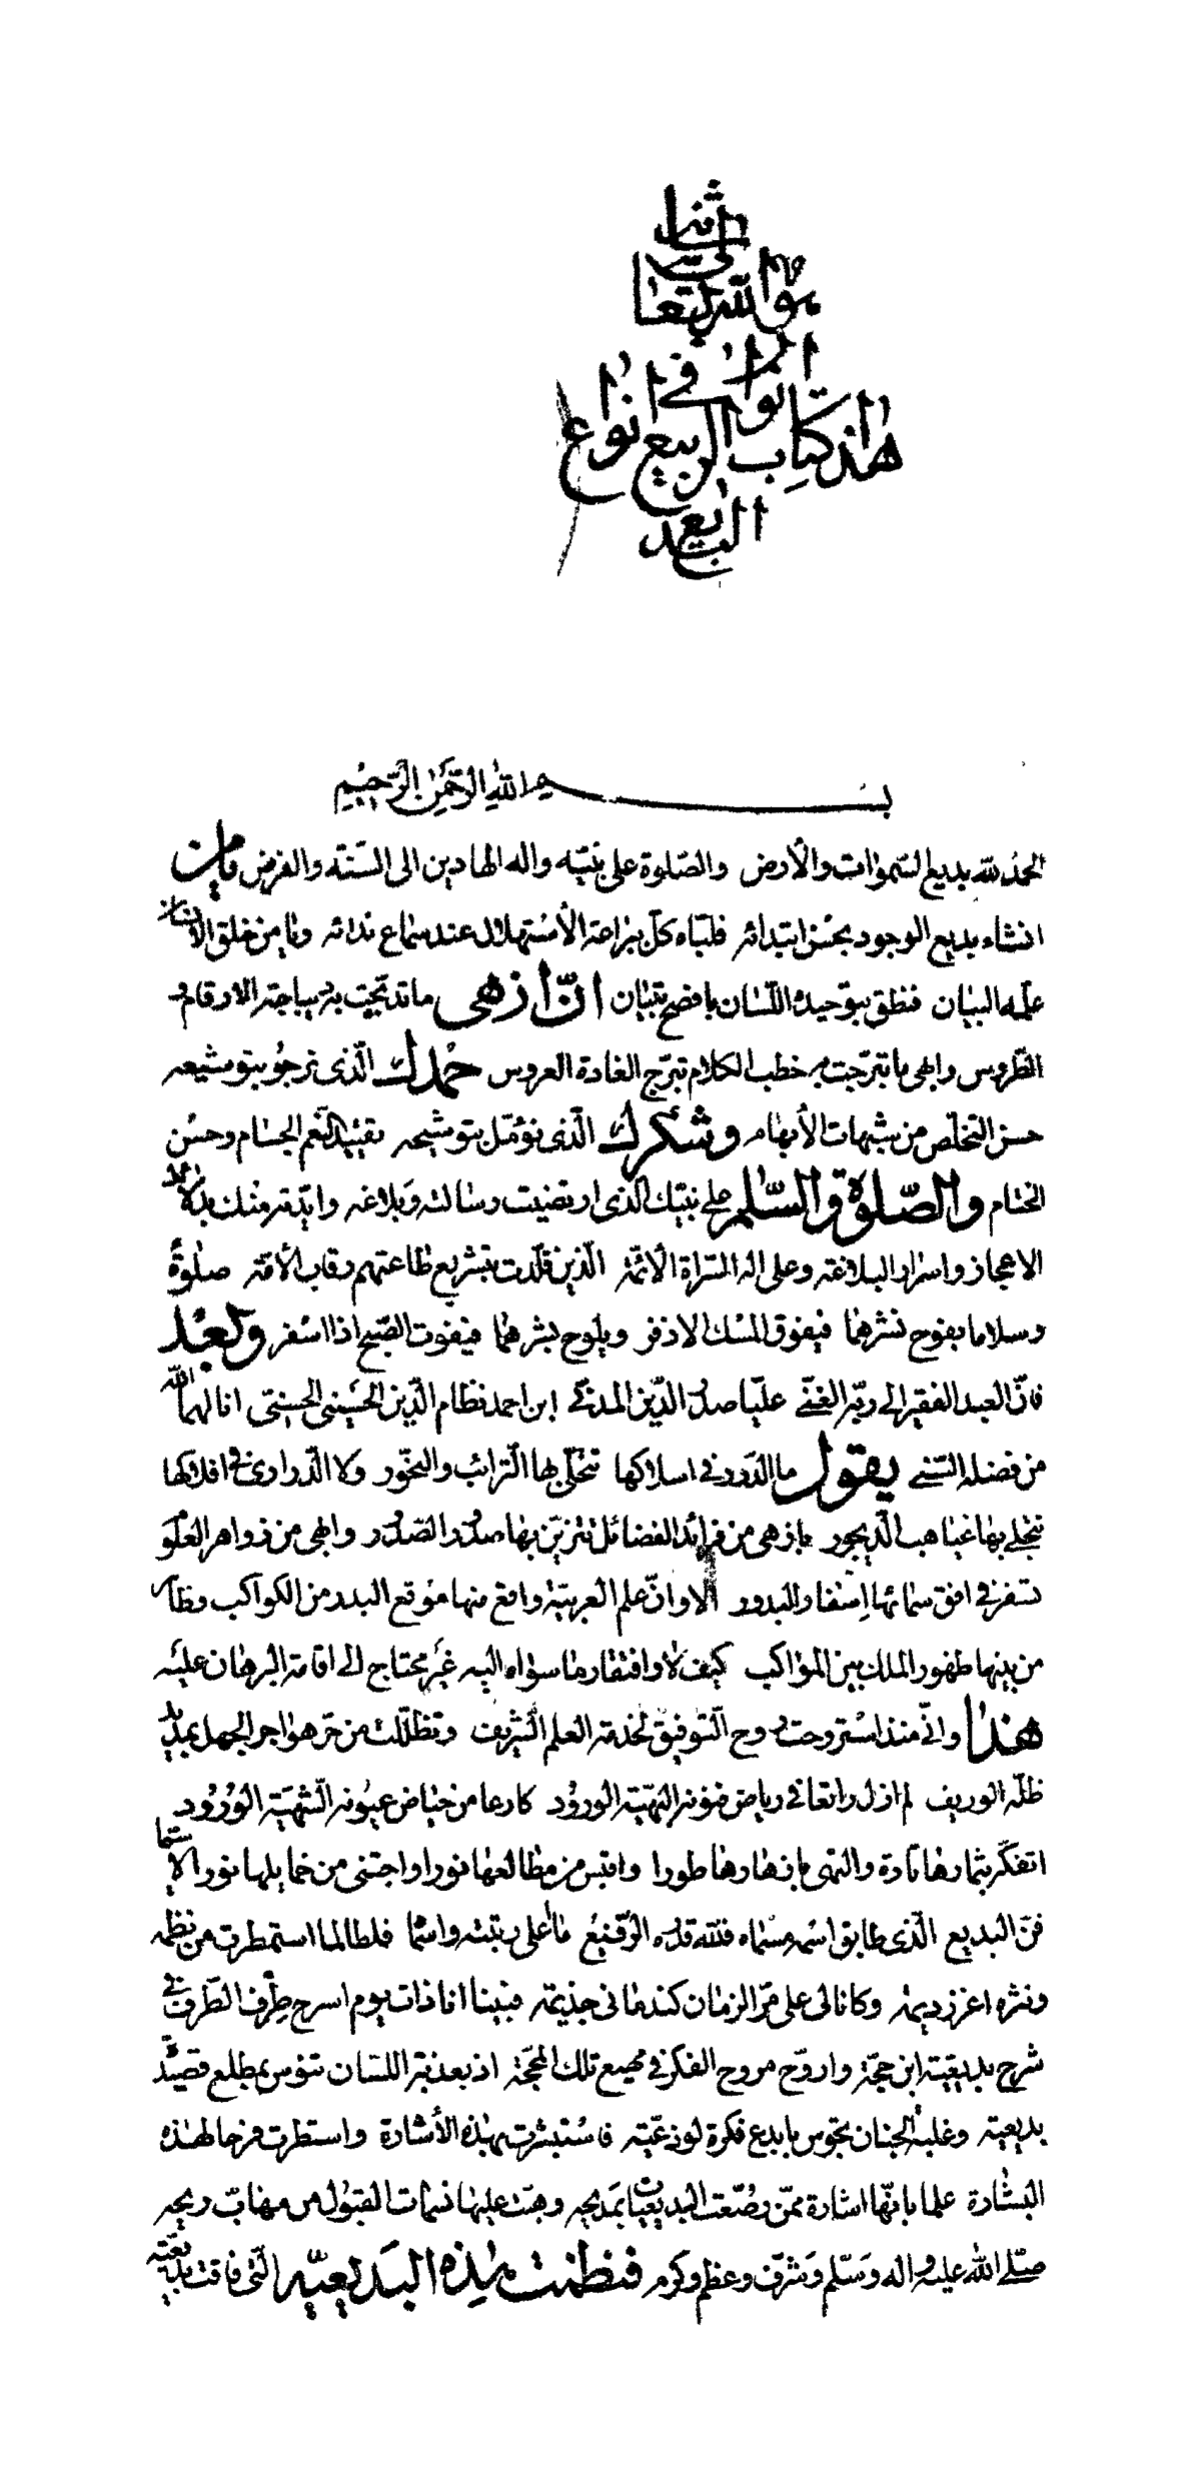 هو الله تعالى شأنه
هذا كتاب أنوار الربيع في أنواع
البديع
بسم اللهِ الرَّحمٰنِ الرَّحِيمِ
الحمد لله بديع السّموات والأرض والصّلوة على نبيّه واله الهادين الى السّنّة والفرض يا من
انشاء بديع الوجود بحسن ابتدائه فلبّاه كلّ ببراعة الأستهلال عند سماع ندائه ويا من خلق الانسان
علمه البيان فنطق بتوحيده اللّسان بافصح تبيان انّ ازهى ما تدبّجت به ديباجة الارقام و
الطّروس وابهى ما تبرّجت به خطب الكلام تبرّج الغادة العروس حمدك الّذى نرجو بتوشيعه
حسن التخلّص من شبهات الأبهام وشكرك الّذى نؤمّل بتوشيحه تقييد النّعم الجسام وحسن
الختام والصّلوة والسّلم على نبيّك الّذى ارتضيت رسالته وبلاغه وايّدته منك بدلائل
الاعجاز واسرار البلاغة وعلى اله السّراة الأئمّة الّذين قلّدت بتشريع طاعتهم رقاب الأمّة صلوةً
وسلاما يفوح نشرهما فيفوق المسك الاذفر ويلوح بشرهما فيفوت الصّبح اذا اسفر وبعد
فانّ العبد الفقير الى ربّه الغنّى عليّا صدر الدّين المدنى ابن احمد نظام الدّين الحسينى الحسنى انالهما الله
من فضله السّنى يقول ما الدّرر فى اسلاكها تتحلّى بها الترائب والنحّور ولا الدّرارى فى افلاكها
تنجلى بها غياهب الدّيجور بازهى من فرائد الفضائل تتزيّن بها صدور الصّدور وابهى من زواهر العلوم
تسفر فى افق سمائها اسفار البدور الا وانّ علم العربيّة واقع منها موقع البدر من الكواكب وظاهر
من بينها ظهور الملك بين المواكب كيف لا وافتقار ما سواه اليه غير محتاج الى اقامة البرهان عليه
هذا وانّى منذ استروحت روح التّوفيق لخدمة العلم الشّريف وتظلّلت من حرّ هواجر الجهل بمديد
ظلّه الوريف لم ازل راتعا فى رياض فنونه البهيّة الورود كارعا من حياض عيونه الشّهيّة الورود
اتفكّر بثمارها تارة والتهى بازهارها طورا واقتبس من مطالعها نورا واجتنى من خمايلها نورا لا سيّما
فنّ البديع الّذى طابق اسمه مسمّاه فللّه قدره الرّفيع ما اعلى رتبته واسمى فلطالما استمطرت من نظمه
ونثره اغزر ديمة وكانا لى على مرّ الزمان كندمانى جذيمة فبينا انا ذات يوم اسرح طرف الطّرف فى
شرح بديعيّة ابن حجّة واروّح مروح الفكر فى مهيع تلك المحجّة اذ بعذبة اللسان تنوس بمطلع قصيدة
بديعية وغلبه الجنان يحوس بابدع فكرة لوذعيّة فاستبشرت بهذه الأشارة واستطرت فرحا لهذه
البشارة علما بانّها اشارة ممّن وصّعت البديعيات بمديحه وهبّت عليها نسمات القبول من مهابّ ريحه
صلّى الله عليه واله وسلّم وشرّف وعظّم وكرم فنظمت هذه البديعيّه الّتى فاقت بديعيّة